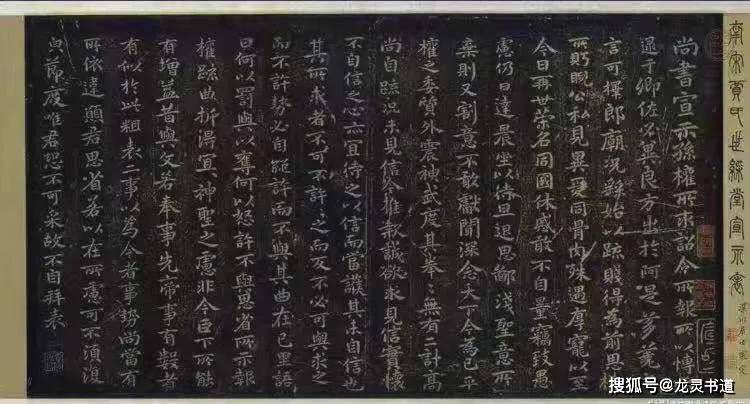 南宋賈氏世綵堂宣示表
尚書宣示孫權所求詔令所報所以博示
逮于卿佐必冀良方出於阿是芻蕘之
言可擇郎廟況繇始以疏賤得為前恩橫
所盻睨公私見異愛同骨肉殊遇厚寵以至
今日再世榮名同國休慼敢不自量竊致愚
慮仍日達晨坐以待旦退思鄙淺聖意所
棄則又割意不敢獻聞深念天下今為已平
權之委質外震神武度其拳拳無有二計高
尚自疏況未見信今推款誠欲求見信實懷
不自信之心亦宜待之以信而當護其未自信也
其所求者不可不許許之而反不必可與求之
而不許勢必自絕許而不與其曲在己里語
曰何以罰與以奪何以怒許不與思省所示報
權疏曲折得宜神聖之慮非今臣下所能
有增益昔與文若奉事先帝事有數者
有似於此粗表二事以為今者事勢尚當有
所依違願君思省若以在所慮可不須復
皃節度唯君恐不可采故不自拜表
搜狐号@龙灵书道